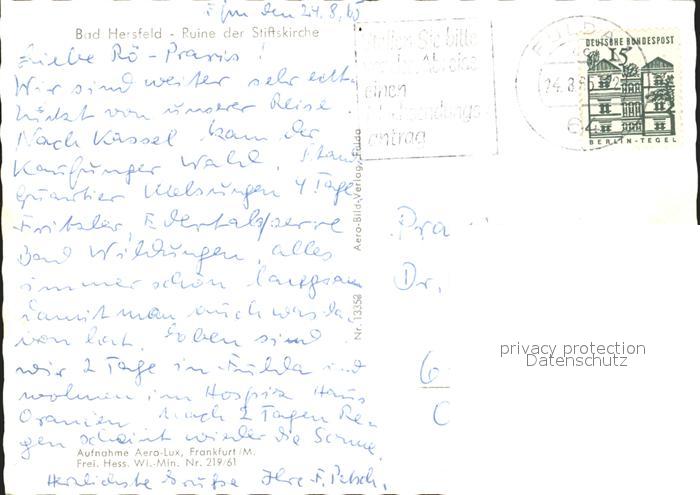 den 24.8.65
Bad Hersfeld - Ruine der Stiftskirche
Liebe Rö-Praxis!
Wir sind weiter sehr entzückt
von unserer Reise.
Nach Kassel kam der
Kaufunger Wald. Stand
quartier Melsungen 4 Tage
Fritzlar, Edertalsperre
Bad Wildungen, alles
immer schön langsam
damit man auch was da
von hat. Soben sind
wir 2 Tage in Fulda und
wohnen im Hospiz Haus
Oranien. Nach 2 Tagen Re
gen scheint wieder die Sonne.
Aufnahme Aero-Lux, Frankfurt/M.
Frei. Hess. Wi.-Min. Nr. 219/61
Herzlichste Grüße Ihre F. Petsch.
Nr. 13358 Aero-Bild-Verlag, Fulda
Stellen Sie bitte
einen
Nachsendungs-
antrag
FULDA
24.8.65
64
DEUTSCHE BUNDESPOST
15
BERLIN-TEGEL
Pra
Dr.
6
privacy protection
Datenschutz